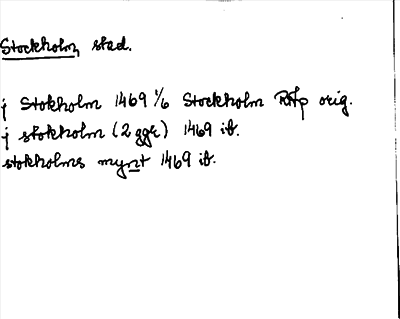 Stockholm, stad.
j Stokholm 1469 1/6 Stockholm RAp orig.
j stokholm (2 ggr) 1469 ib.
stokholms mynt 1469 ib.